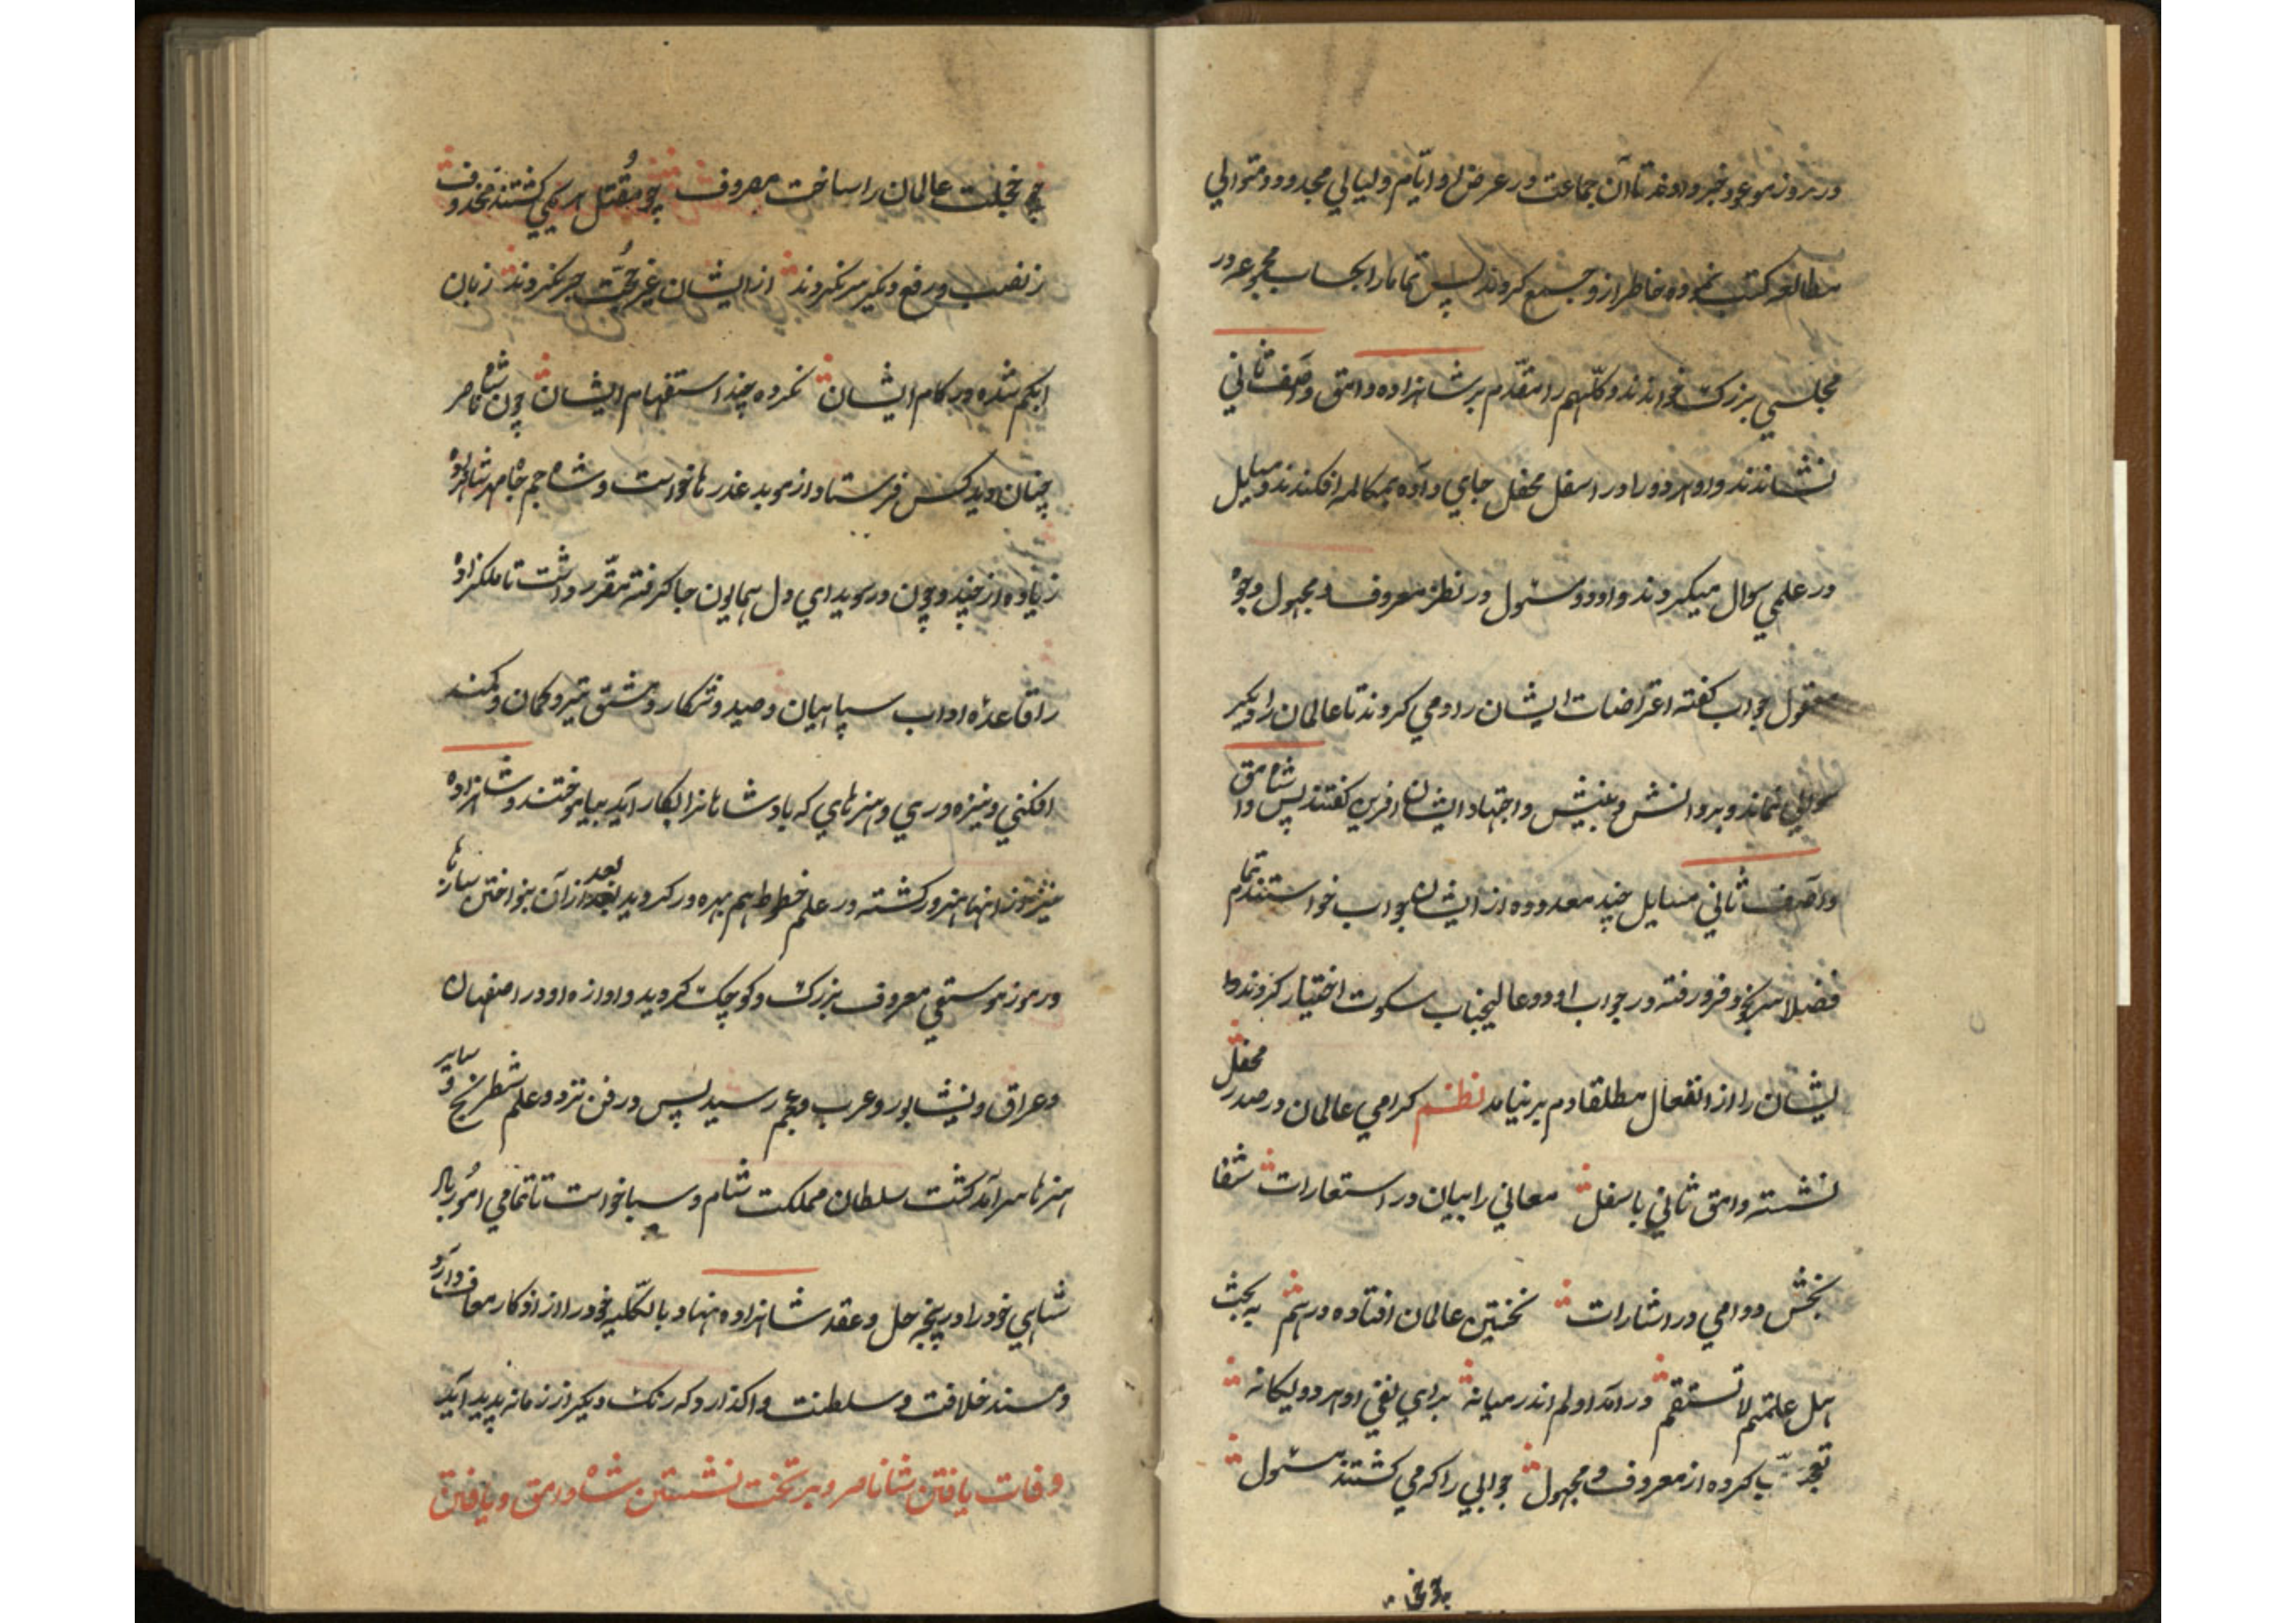 در روز موعود خبر دادند تا آن جماعت در عرض او ایام و لیالی محدود و متوالی
مطالعه کتب نموده خاطر از و جمیع کردند پس تمامدا بحساب مجموعه در
مجلسی بزرک خواندند و کلهم را مقدم بر شاهزاده وامق و آصف ثانی
نشاندند و او هر دو را در اسفل محفل جای داده بمکالمه افکندند و مسایل
در علمی سوال میکردند و او دو مسئول در نظر معروف و مجهول وجوه
مقول جواب کفته اعتراضات ایشان رد می کردند تا عالمان را دیکر
سوالی نماند و بر دانش و بینش و اجتهاد ایشان افرین کفتند پس شاه وامق
و آصف ثانی مسایل چند معدوده از ایشان جواب خواستند تمام
فضلا سر بخود فرو رفته در جواب او دو عالیجناب سکوت اختیار کردند و
ایشان را از انفعال مطلقا دم بر نیامد نظم کرامی عالمان در صدر محفل
نشسته وامق ثانی باسفل معانی را بیان در استعارات شفا
بخش دوامی در اشارات نخستین عالمان افتاده در هم به بحث
هل علمتم لا نستقم در آمد او لم اندر میانه برای نفی او هر دو یکانه
تعجب کرده از معروف و مجهول جوابی را که می کشتند مسئول
چو خجلت عالمان را ساخت مصروف چو مقتل هر یکی کشتند محذوف
ز نصب و رفع دیکر سر نکردند از ایشان غیر حجت جر نکردند زبان
ابکم شده در کام ایشان نکرده چند استفهام ایشان چون شاه ناصر
چنان دید کس فرستاد از موبد عذرها خواست و شاه جم جاه مهر شاهزاده
زیاده از چند و چون در سویدای دل همایون جا کرفته مقرر داشت تا ملکزاده
را قاعده اداب سپاهیان و صید و شکار و مشق تیر و کمان و کمند
افکنی و نیزه وری و هنرهای که پادشاهانرا بکار آید بیاموختند و شاهزاده
نیز از انها هنرور کشته در علم خطوط هم بهره ور کردید بعد از آن بنواختن سازها
و رموز موسیقی معروف بزرک و کوچک کردید و اوازه او در اصفهان
و عراق و نیشابور و عرب و عجم رسید پس در فن نرد و علم شطرنج و سایر
هنرها سر آمد کشت سلطان مملکت شام و سبا خواست تا تمامی امور بار
شاهی خود را در پنجه حل و عقد شاهزاده نهاد بالکلیه خود را از افکار معاف دارد
و مسند خلافت و سلطنت واکذارد که رنک دیکر از زمانه پدید آید
وفات یافتن شاه ناصر و بر تخت نشستن شاه وامق و یافتن